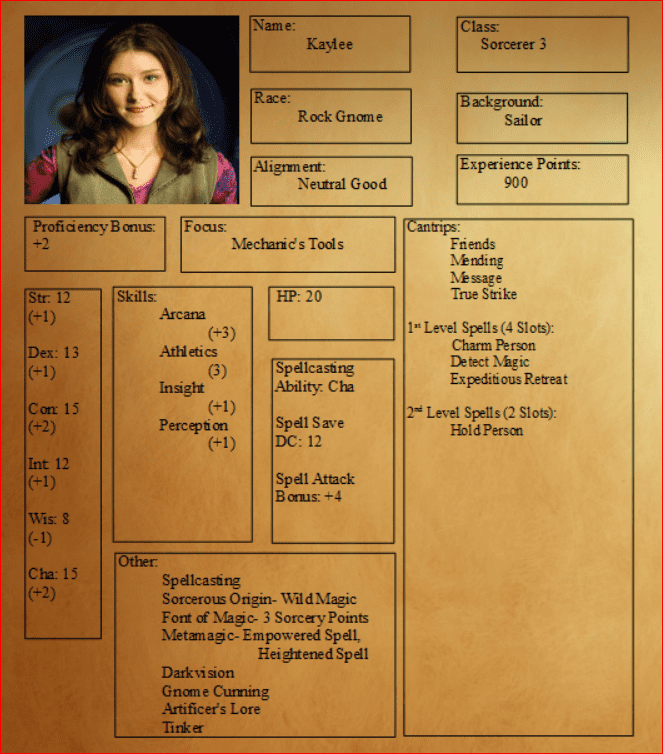 Name:
Kaylee
Class:
Sorcerer 3
Race:
Rock Gnome
Background:
Sailor
Alignment:
Neutral Good
Experience Points:
900
Proficiency Bonus:
+2
Focus:
Mechanic's Tools
Str: 12
(+1)
Dex: 13
(+1)
Con: 15
(+2)
Int: 12
(+1)
Wis: 8
(-1)
Cha: 15
(+2)
Skills:
Arcana
(+3)
Athletics
(3)
Insight
(+1)
Perception
(+1)
HP: 20
Spellcasting
Ability: Cha
Spell Save
DC: 12
Spell Attack
Bonus: +4
Cantrips:
Friends
Mending
Message
True Strike
1st Level Spells (4 Slots):
Charm Person
Detect Magic
Expeditious Retreat
2nd Level Spells (2 Slots):
Hold Person
Other:
Spellcasting
Sorcerous Origin- Wild Magic
Font of Magic- 3 Sorcery Points
Metamagic- Empowered Spell,
Heightened Spell
Darkvision
Gnome Cunning
Artificer's Lore
Tinker